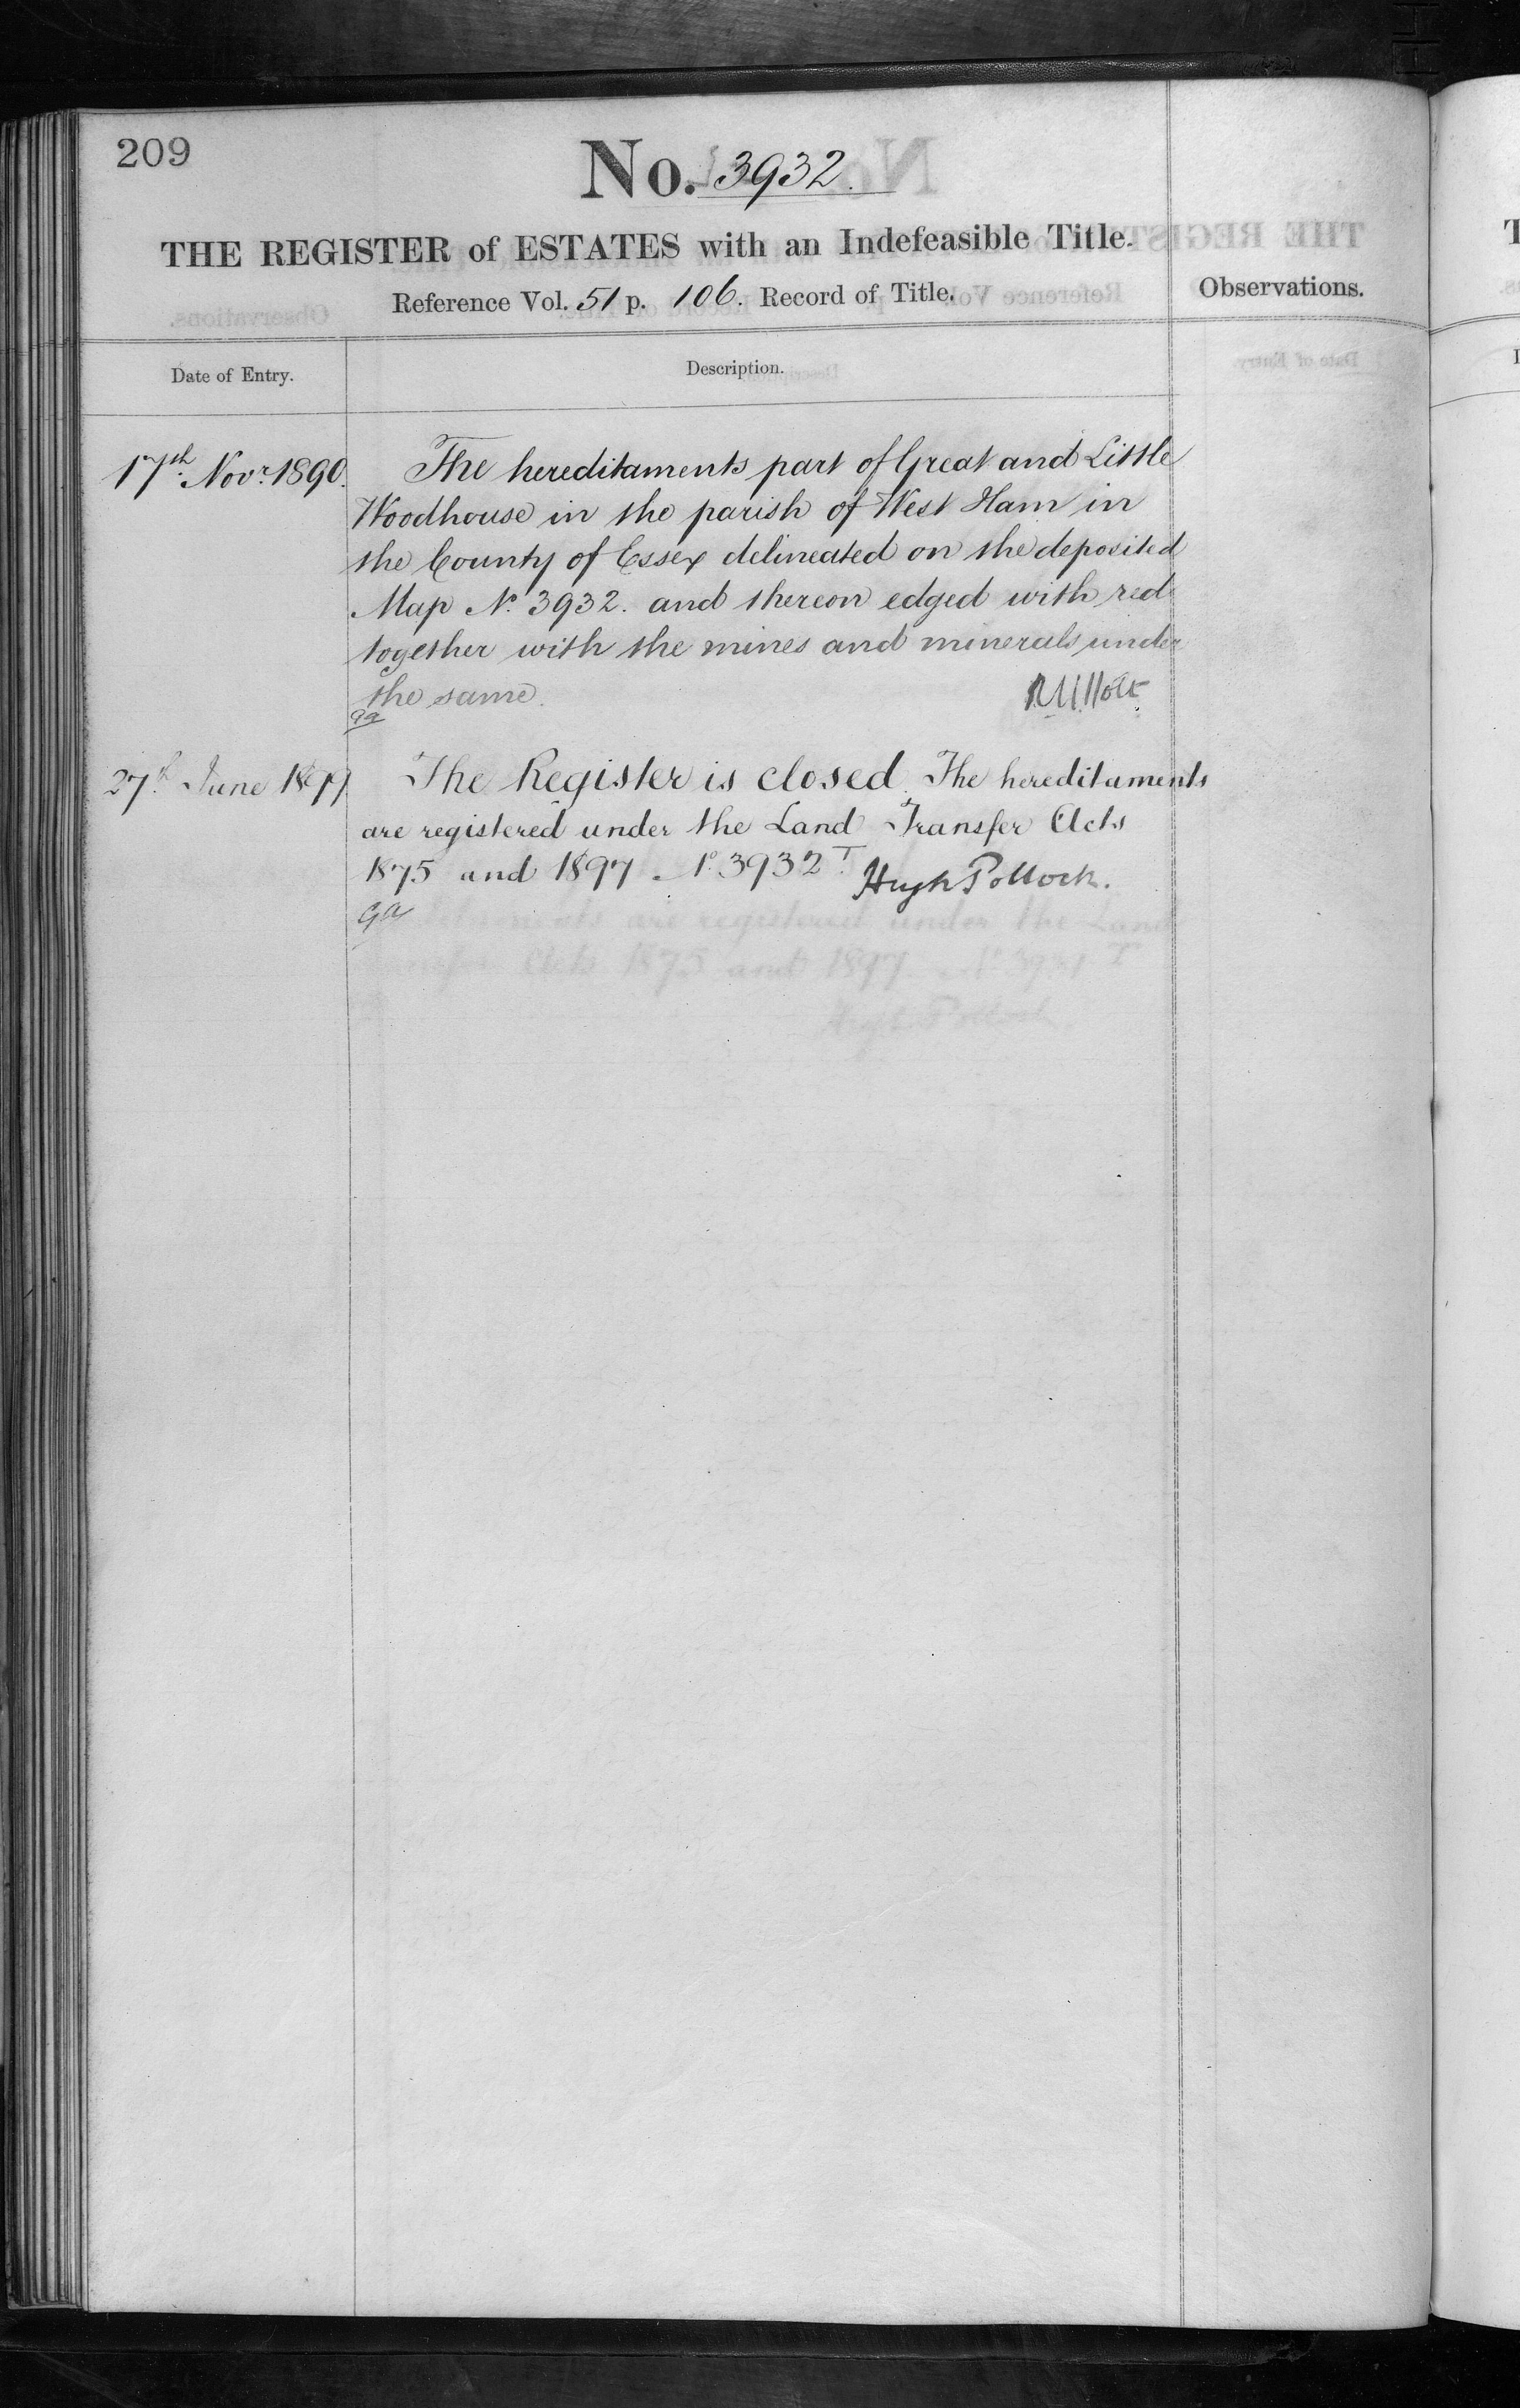 209
No. 3932.
THE REGISTER of ESTATES with an Indefeasible Title.
Reference Vol. 51 p. 106. Record of Title.
Observations.
Date of Entry.
Description.
17th Novr. 1890.
The hereditaments part of Great and Little
Woodhouse in the parish of West Ham in
the County of Essex delineated on the deposited
Map No. 3932. and thereon edged with red
together with the mines and minerals under
the same.
27th June 1899
The Register is closed. The hereditaments
are registered under the Land Transfer Acts
1875 and 1897 No. 3932T.
Hugh Pollock.